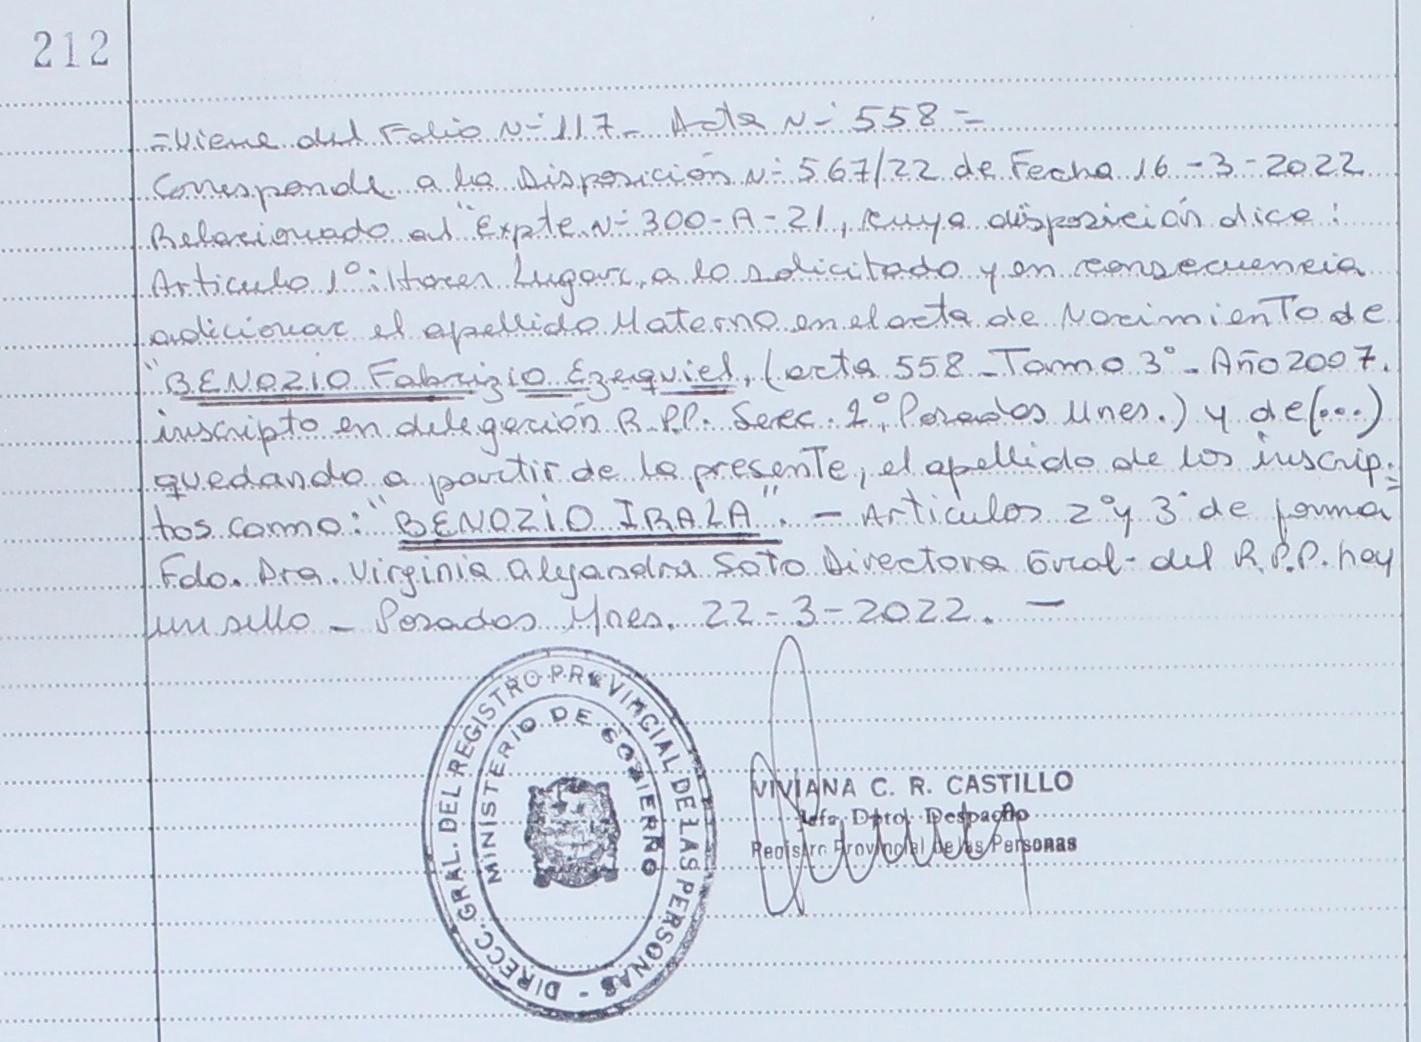 212
= Viene del Folio N- 117 - Acta N- 558 =
Corresponde a la Disposición N- 567/22 de Fecha 16 - 3 - 2022
Relacionado al "Expte. N- 300 - A - 21, cuya disposición dice:
Articulo 1°: Hacer Lugar, a lo solicitado y en consecuencia
adicionar el apellido Materno en el acta de Nacimiento de
"BENOZIO Fabrizio Ezequiel, (acta 558 - Tomo 3° - Año 2007.
inscripto en delegación R.P.P. Secc. 2° Posadas Mnes.) y de (...)
quedando a partir de la presente, el apellido de los inscrip=
tos como: "BENOZIO IRALA". - Articulos 2° y 3° de forma
Fdo. Dra. Virginia Alejandra Soto Directora Gral - del R.P.P. hay
un sello - Posadas Mnes. 22 - 3 - 2022. -
DIRECC. GRAL. DEL REGISTRO PROVINCIAL DE LAS PERSONAS -
MINISTERIO DE GOBIERNO
VIVIANA C. R. CASTILLO
Jefa Dpto. Despacho
Registro Provincial de las Personas